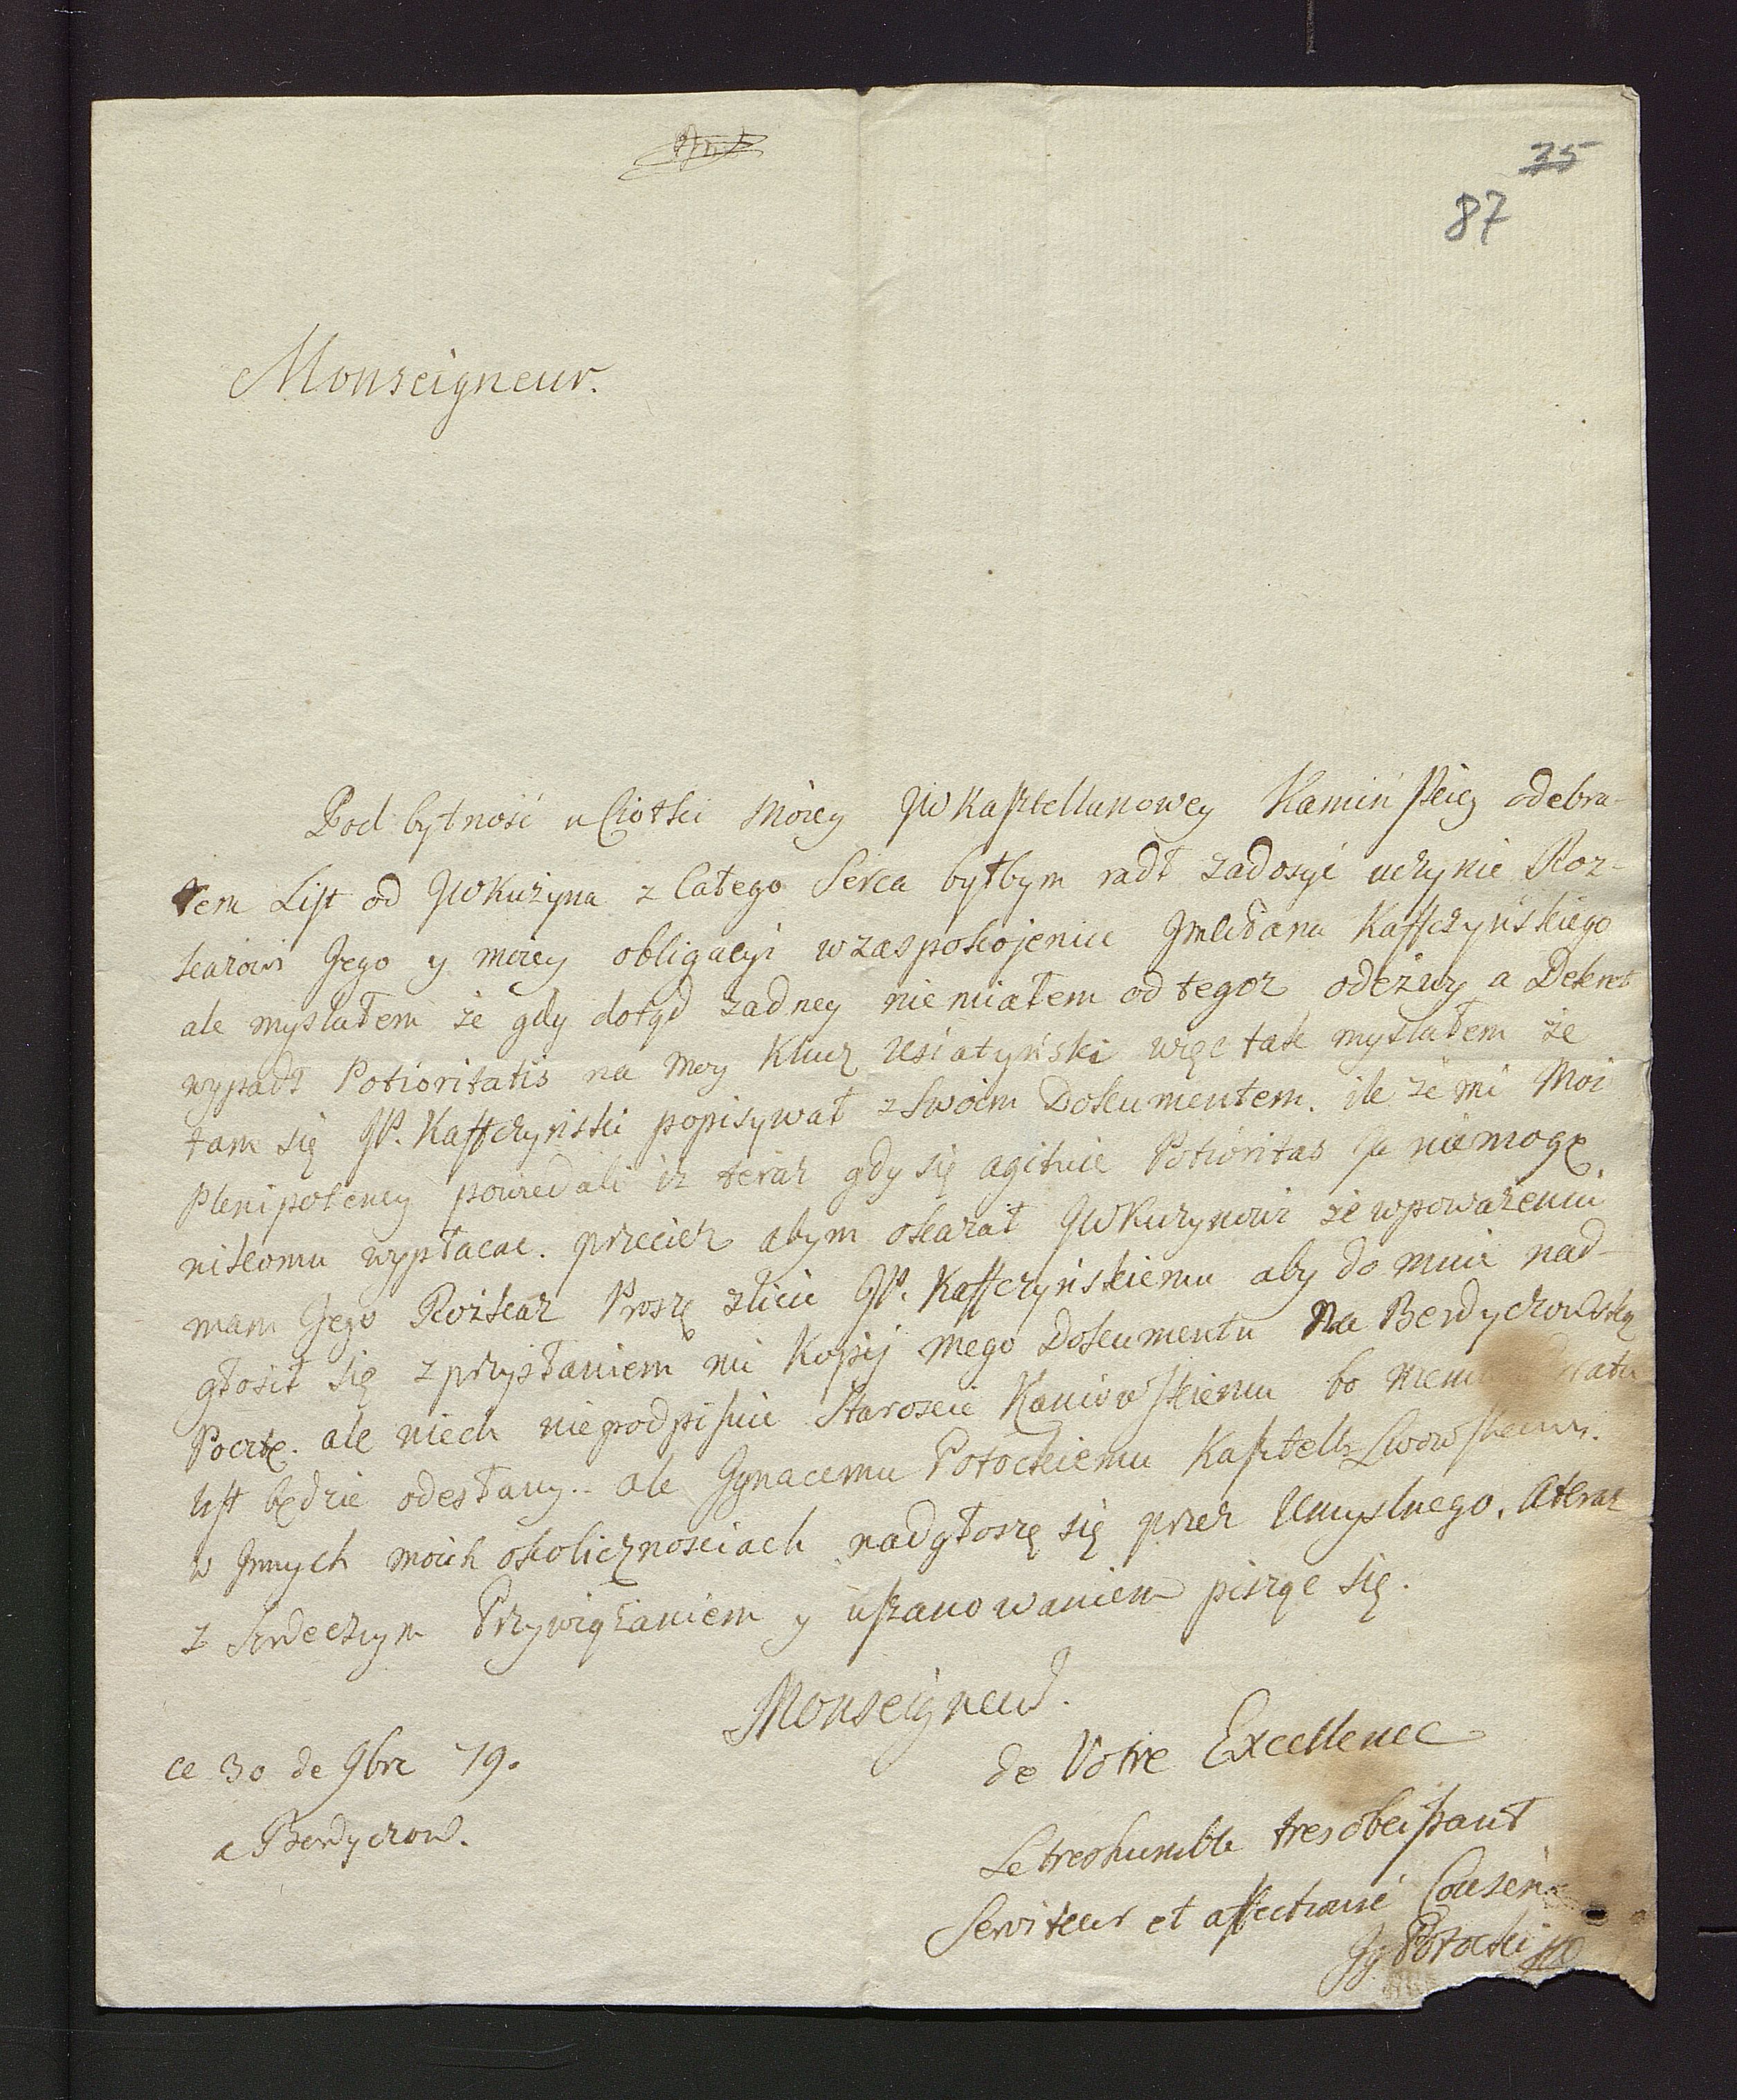 35
87
Monseigneur.
Pod bytnosć u Ciotki Moiey JW Kasztellanowey Kamińskiey odebra-
łem List od JW Kuzyna z Całego Serca byłbym radł zadosyć uczynic Roz-
kazowi Jego y moiey obligacyi w zaspokojeniu Kaffczyńskiego
ale myslałem że gdy dotąd zadney nie miałem od tegoz odezwy a Dekret
wypadł Potioritatis na moy Klucz Usiatyński więc tak myslałem że
tam się JP. Kaffczyński popisywał z Swoim Dokumentem. ile że mi Moi
Plenipotency powiedali iz teraz gdy się agituie Potioritas Ja niemogę
nikomu wypłacac. przeciez abym okazał JW Kuzynowi że w poważeniu
mam Jego Rozkaz Proszę zlicić JP. Kaffczyńskiemu aby do mnie nad-
głosił się z przysłaniem mi Kopij mego Dokumentu Na Berdyczowską
Pocztę. ale niech niepodpisuie Staroscie Kaniowskiemu bo
list będzie odesłany.. ale Jgnacemu Potockiemu Kasztell: Lwowskiemu.
w Jnnych moich okolicznosciach nadgłoszę się przez Umyslnego. A teraz
z Serdecznym Przywiązaniem y uszanowaniem pisząc się.
Monseigneur.
de Votre Excellence
ce 30 de 9bre 79.
a Berdyczow.
Le tres humble tres obeissant
Serviteur et affectioné Cousin
Jg Potocki